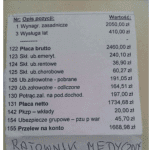 Nr Opis pozycji: Wartość:
1 Wynagr. zasadnicze 2050,00 zł
3 Wysługa lat 410,00 zł
122 Płaca brutto 2460,00 zł
123 Skł. ub.emeryt. 240,10 zł
124 Skł. ub.rentowe 36,90 zł
125 Skł. ub.chorobowe 60,27 zł
128 Ub.zdrowotne - pobrane
129 Ub.zdrowotne - odlicz.
130 Potrąc.zal. na pod.dochod. 197,00 zł
131 Płaca netto 1734,68 zł
142 Pkzp - wkłady 20,00 zł
154 Ubezpieczenie grupowe - pzu p war 45,70 zł
155 Przelew na konto 1668,98 zł
RATOWNIK MEDYCZNY